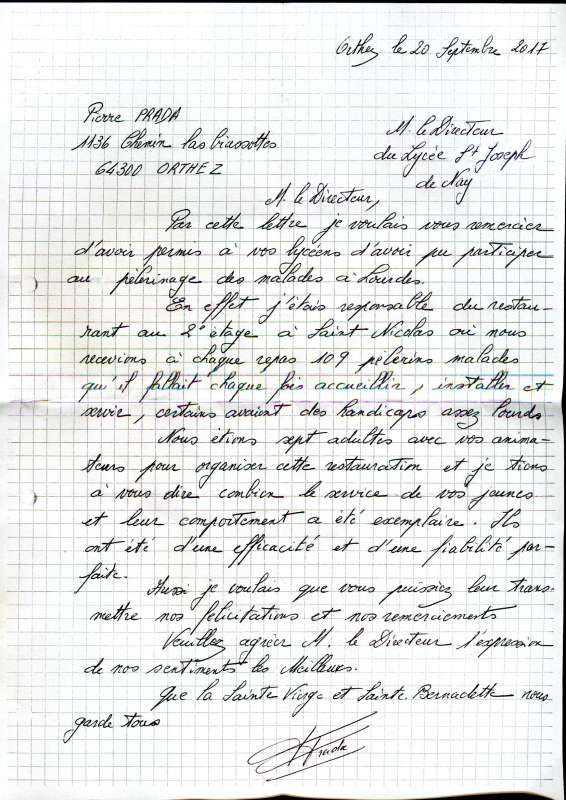 Orthez le 20 Septembre 2017
Pierre PRADA
1136 Chemin las biassottes
64300 ORTHEZ
M. le Directeur
du Lycée St Joseph
de Nay
M. le Directeur,
Par cette lettre je voulais vous remercier
d'avoir permis à vos lycéens d'avoir pu participer
au pèlerinage des malades à Lourdes.
En effet j'étais responsable du restau-
rant au 2° étage à Saint Nicolas où nous
recevions à chaque repas 109 pèlerins malades
qu'il fallait chaque fois accueillir, installer et
servir, certains avaient des handicaps assez lourds
Nous étions sept adultes avec vos anima-
teurs pour organiser cette restauration et je tiens
à vous dire combien le service de vos jeunes
et leur comportement a été exemplaire. Ils
ont été d'une efficacité et d'une fiabilité par-
faite.
Aussi je voulais que vous puissiez leur trans-
mettre nos félicitations et nos remerciements
Veuillez agréer M. le Directeur l'expression
de nos sentiments les Meilleurs.
Que la Sainte Vierge et Sainte Bernadette nous
garde tous
Prada